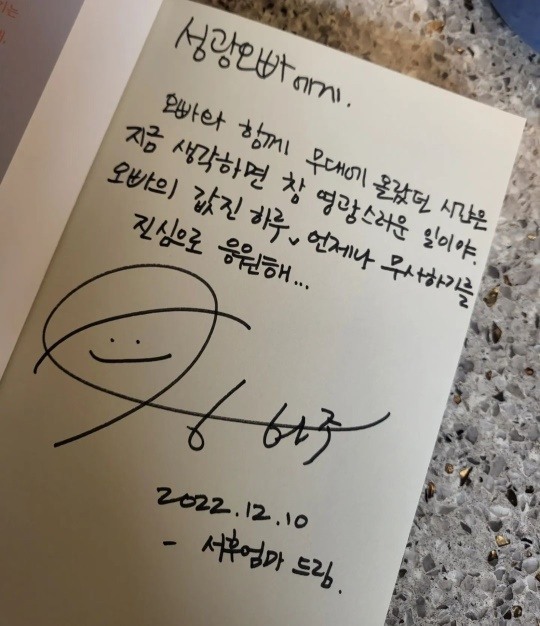 성광오빠에게.
오빠와 함께 무대에 올랐던 시간은
지금 생각하면 참 영광스러운 일이야.
오빠의 값진 하루, 언제나 무사하기를
진심으로 응원해...
2022.12.10
- 서후엄마 드림.